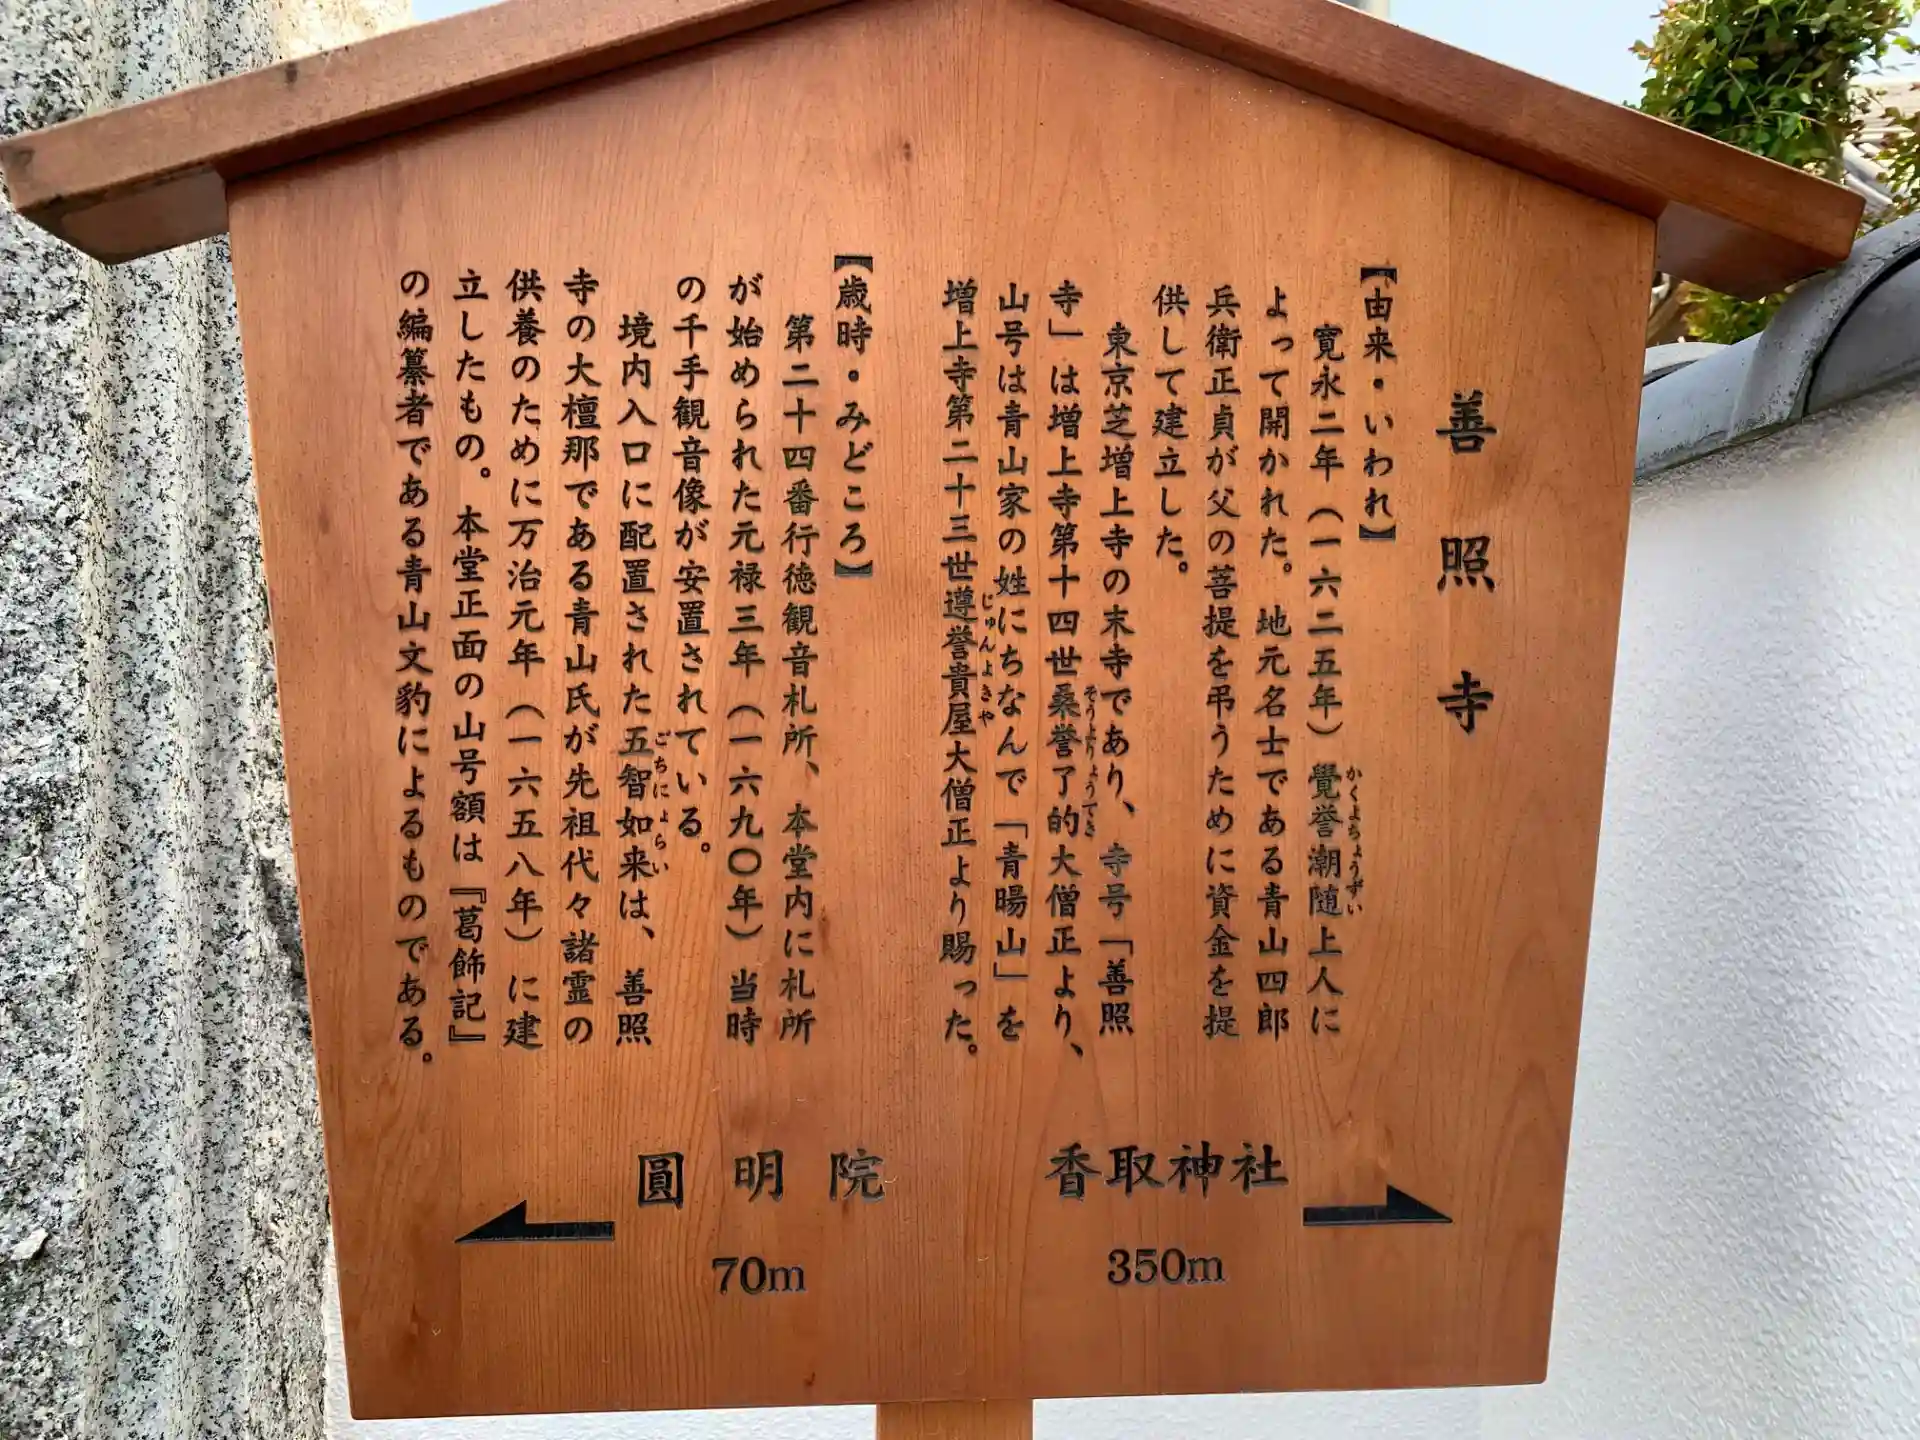 善照寺
【由来・いわれ】
寛永二年（一六二五年）覺誉潮随上人に
かくよちょうずい
よって開かれた。地元名士である青山四郎
兵衛正貞が父の菩提を弔うために資金を提
供して建立した。
東京芝増上寺の末寺であり、寺号「善照
寺」は増上寺第十四世桑誉了的大僧正より、
そうよりょうてき
山号は青山家の姓にちなんで「青暘山」を
増上寺第二十三世遵誉貴屋大僧正より賜った。
じゅんよきや
【歳時・みどころ】
第二十四番行徳観音札所、本堂内に札所
が始められた元禄三年（一六九〇年）当時
の千手観音像が安置されている。
境内入口に配置された五智如来は、善照
ごちにょらい
寺の大檀那である青山氏が先祖代々諸霊の
供養のために万治元年（一六五八年）に建
立したもの。本堂正面の山号額は『葛飾記』
の編纂者である青山文豹によるものである。
圓明院
70m
香取神社
350m